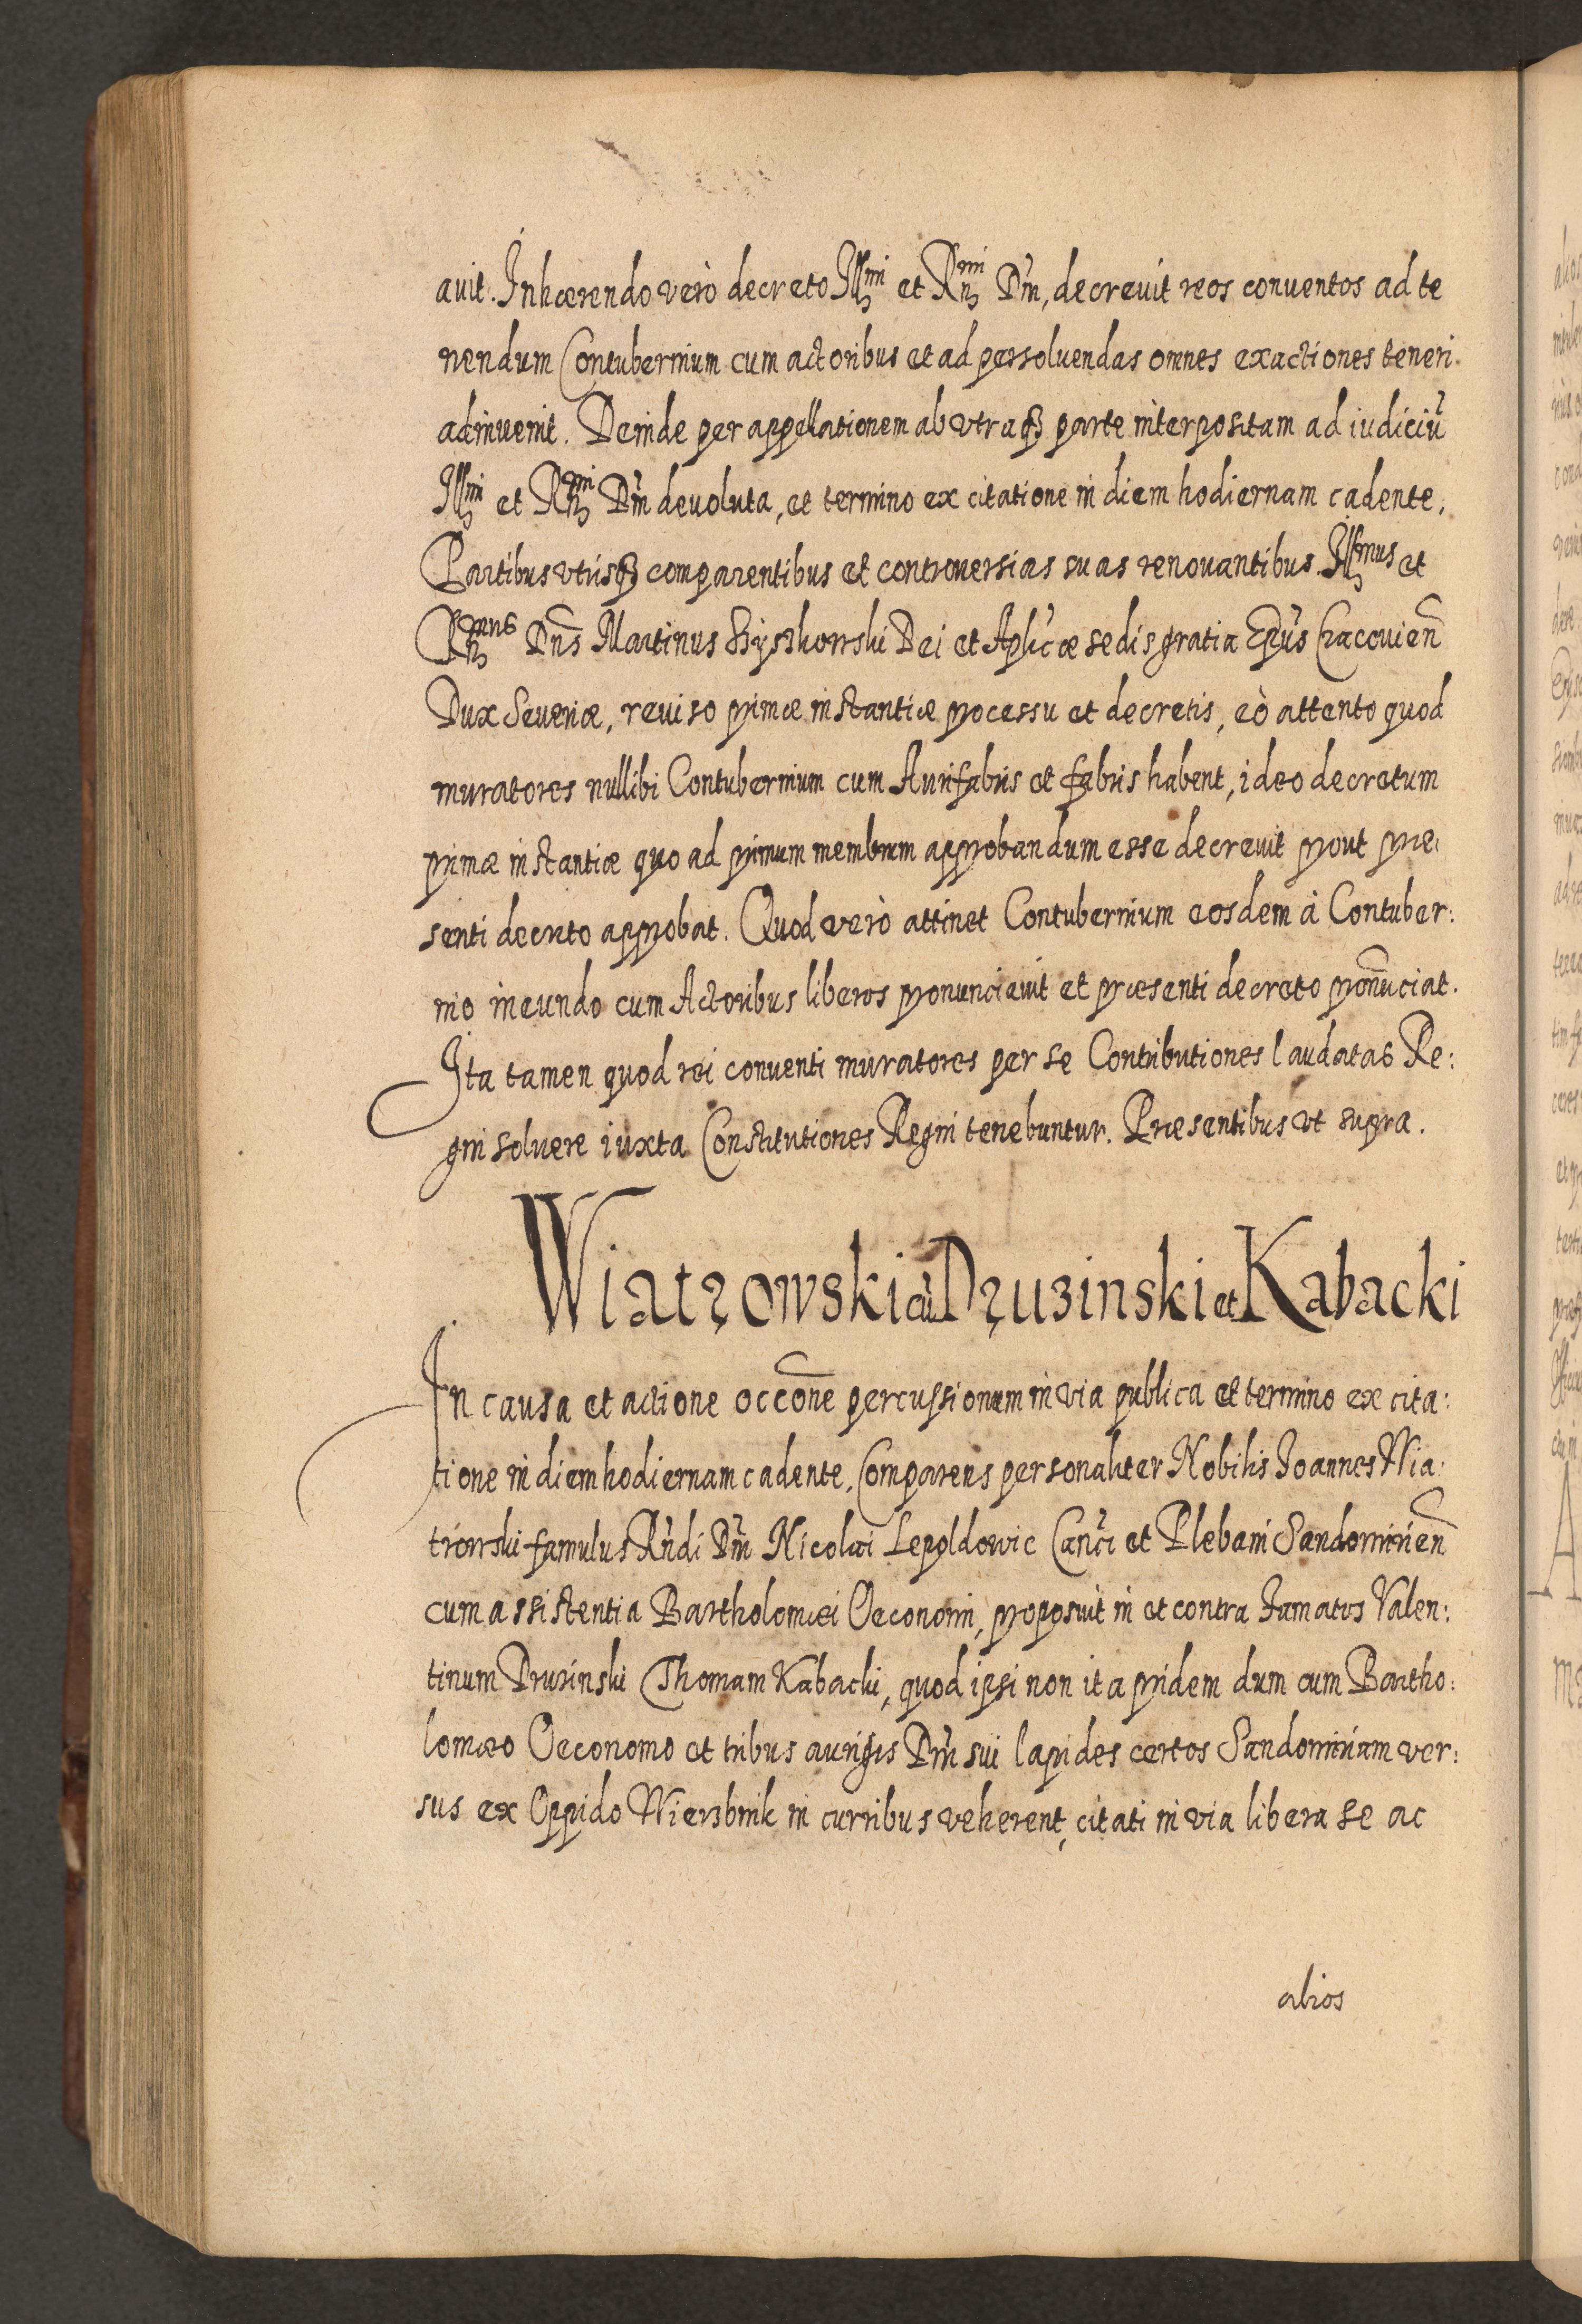 auit. Inhærendo verò decreto Ill<sup>mi</sup> et R<sup>mi</sup> Dñi, decrevit reos conuentos ad te
nendum Contubernium cum actoribus et ad persoluendas omnes exactiones teneri
adinuenit. Deinde per appellationem ab vtraqꝫ parte interpositam ad iudiciũ
Ill<sup>mi</sup> et R<sup>mi</sup> Dñi devoluta, et termino ex citatione in diem hodiernam cadente,
Partibus vtrisqꝫ comparentibus et controuersias suas renouantibus. Ill<sup>mus</sup> et
R<sup>mus</sup> Dñs Martinus Szyszkowski Dei et Aplicæ sedis gratia Epũs Cracouieñ
Dux Seueriæ, reuiso primæ instantiæ processu et decretis, eò attento quod
muratores nullibi Contubernium cum Aurifabris et fabris habent, ideo decretum
primæ instantiæ quo ad primum membrum approbandum esse decrevit prout præ
senti decreto approbat. Quod verò attinet Contubernium eosdem à Contuber:
nio ineundo cum Actoribus liberos pronunciavit et præsenti decreto pronũciat.
Ita tamen quod rei conventi muratores per se Contributiones laudatas Re:
gni soluere iuxta Constitutiones Regni tenebuntur. Præsentibus vt supra.
Wiatrowski cũ Druzinski et Kabacki
In causa et actione occõne percussionum in via publica et termino ex cita:
tione in diem hodiernam cadente. Comparens personaliter Nobilis Joannes Wia:
trowski famulus Rñdi Dñi Nicolai Lepoldowic Canci et Plebani Sandomirieñ
cum assistentia Bartholomæi Oeconomi, proposuit in et contra Famatos Valen:
tinum Druzinski Thomam Kabacki, quod ipsi non ita pridem dum cum Bartho:
lomæo Oeconomo et tribus aurigis Dñi sui lapides certos Sandomiriam ver:
sus ex Oppido Wierzbnik in curribus veherent, citati in via libera se ac
alios